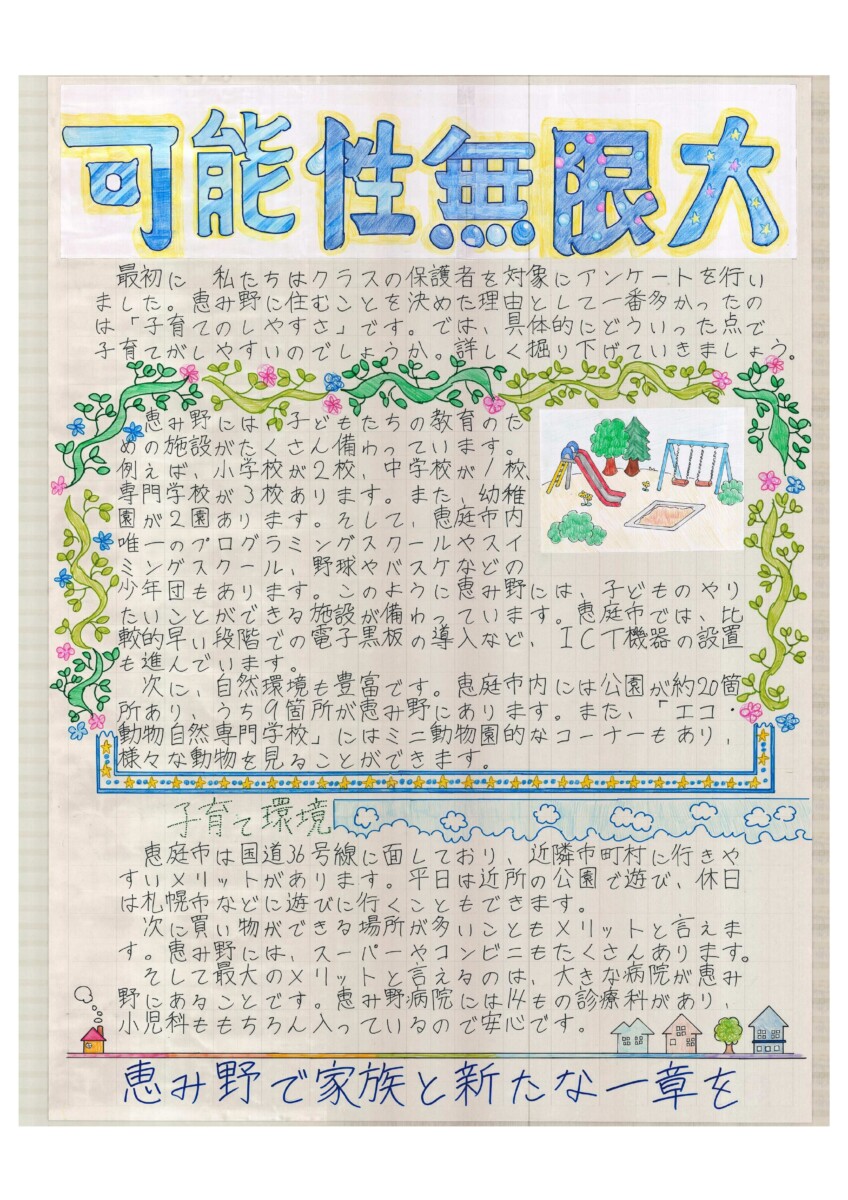 可能性無限大
最初に 私たちはクラスの保護者を対象にアンケートを行い
ました。恵み野に住むことを決めた理由として一番多かったの
は「子育てのしやすさ」です。では、具体的にどういった点で
子育てがしやすいのでしょうか。詳しく掘り下げていきましょう。
恵み野には、子どもたちの教育のた
めの施設がたくさん備わっています。
例えば、小学校が2校、中学校が1校、
専門学校が3校あります。また、幼稚
園が2園あります。そして、恵庭市内
唯一のプログラミングスクールやスイ
ミングスクール、野球やバスケなどの
少年団もあります。このように恵み野には、子どものやり
たいことができる施設が備わっています。恵庭市では、比
較的早い段階での電子黒板の導入など、ICT機器の設置
も進んでいます。
次に、自然環境も豊富です。恵庭市内には公園が約20箇
所あり、うち9箇所が恵み野にあります。また、「エコ・
動物自然専門学校」にはミニ動物園的なコーナーもあり、
様々な動物を見ることができます。
子育て環境
恵庭市は国道36号線に面しており、近隣市町村に行きや
すいメリットがあります。平日は近所の公園で遊び、休日
は札幌市などに遊びに行くこともできます。
次に買い物ができる場所が多いこともメリットと言えま
す。恵み野には、スーパーやコンビニもたくさんあります。
そして最大のメリットと言えるのは、大きな病院が恵み
野にあることです。恵み野病院には14もの診療科があり、
小児科ももちろん入っているので安心です。
恵み野で家族と新たな一章を